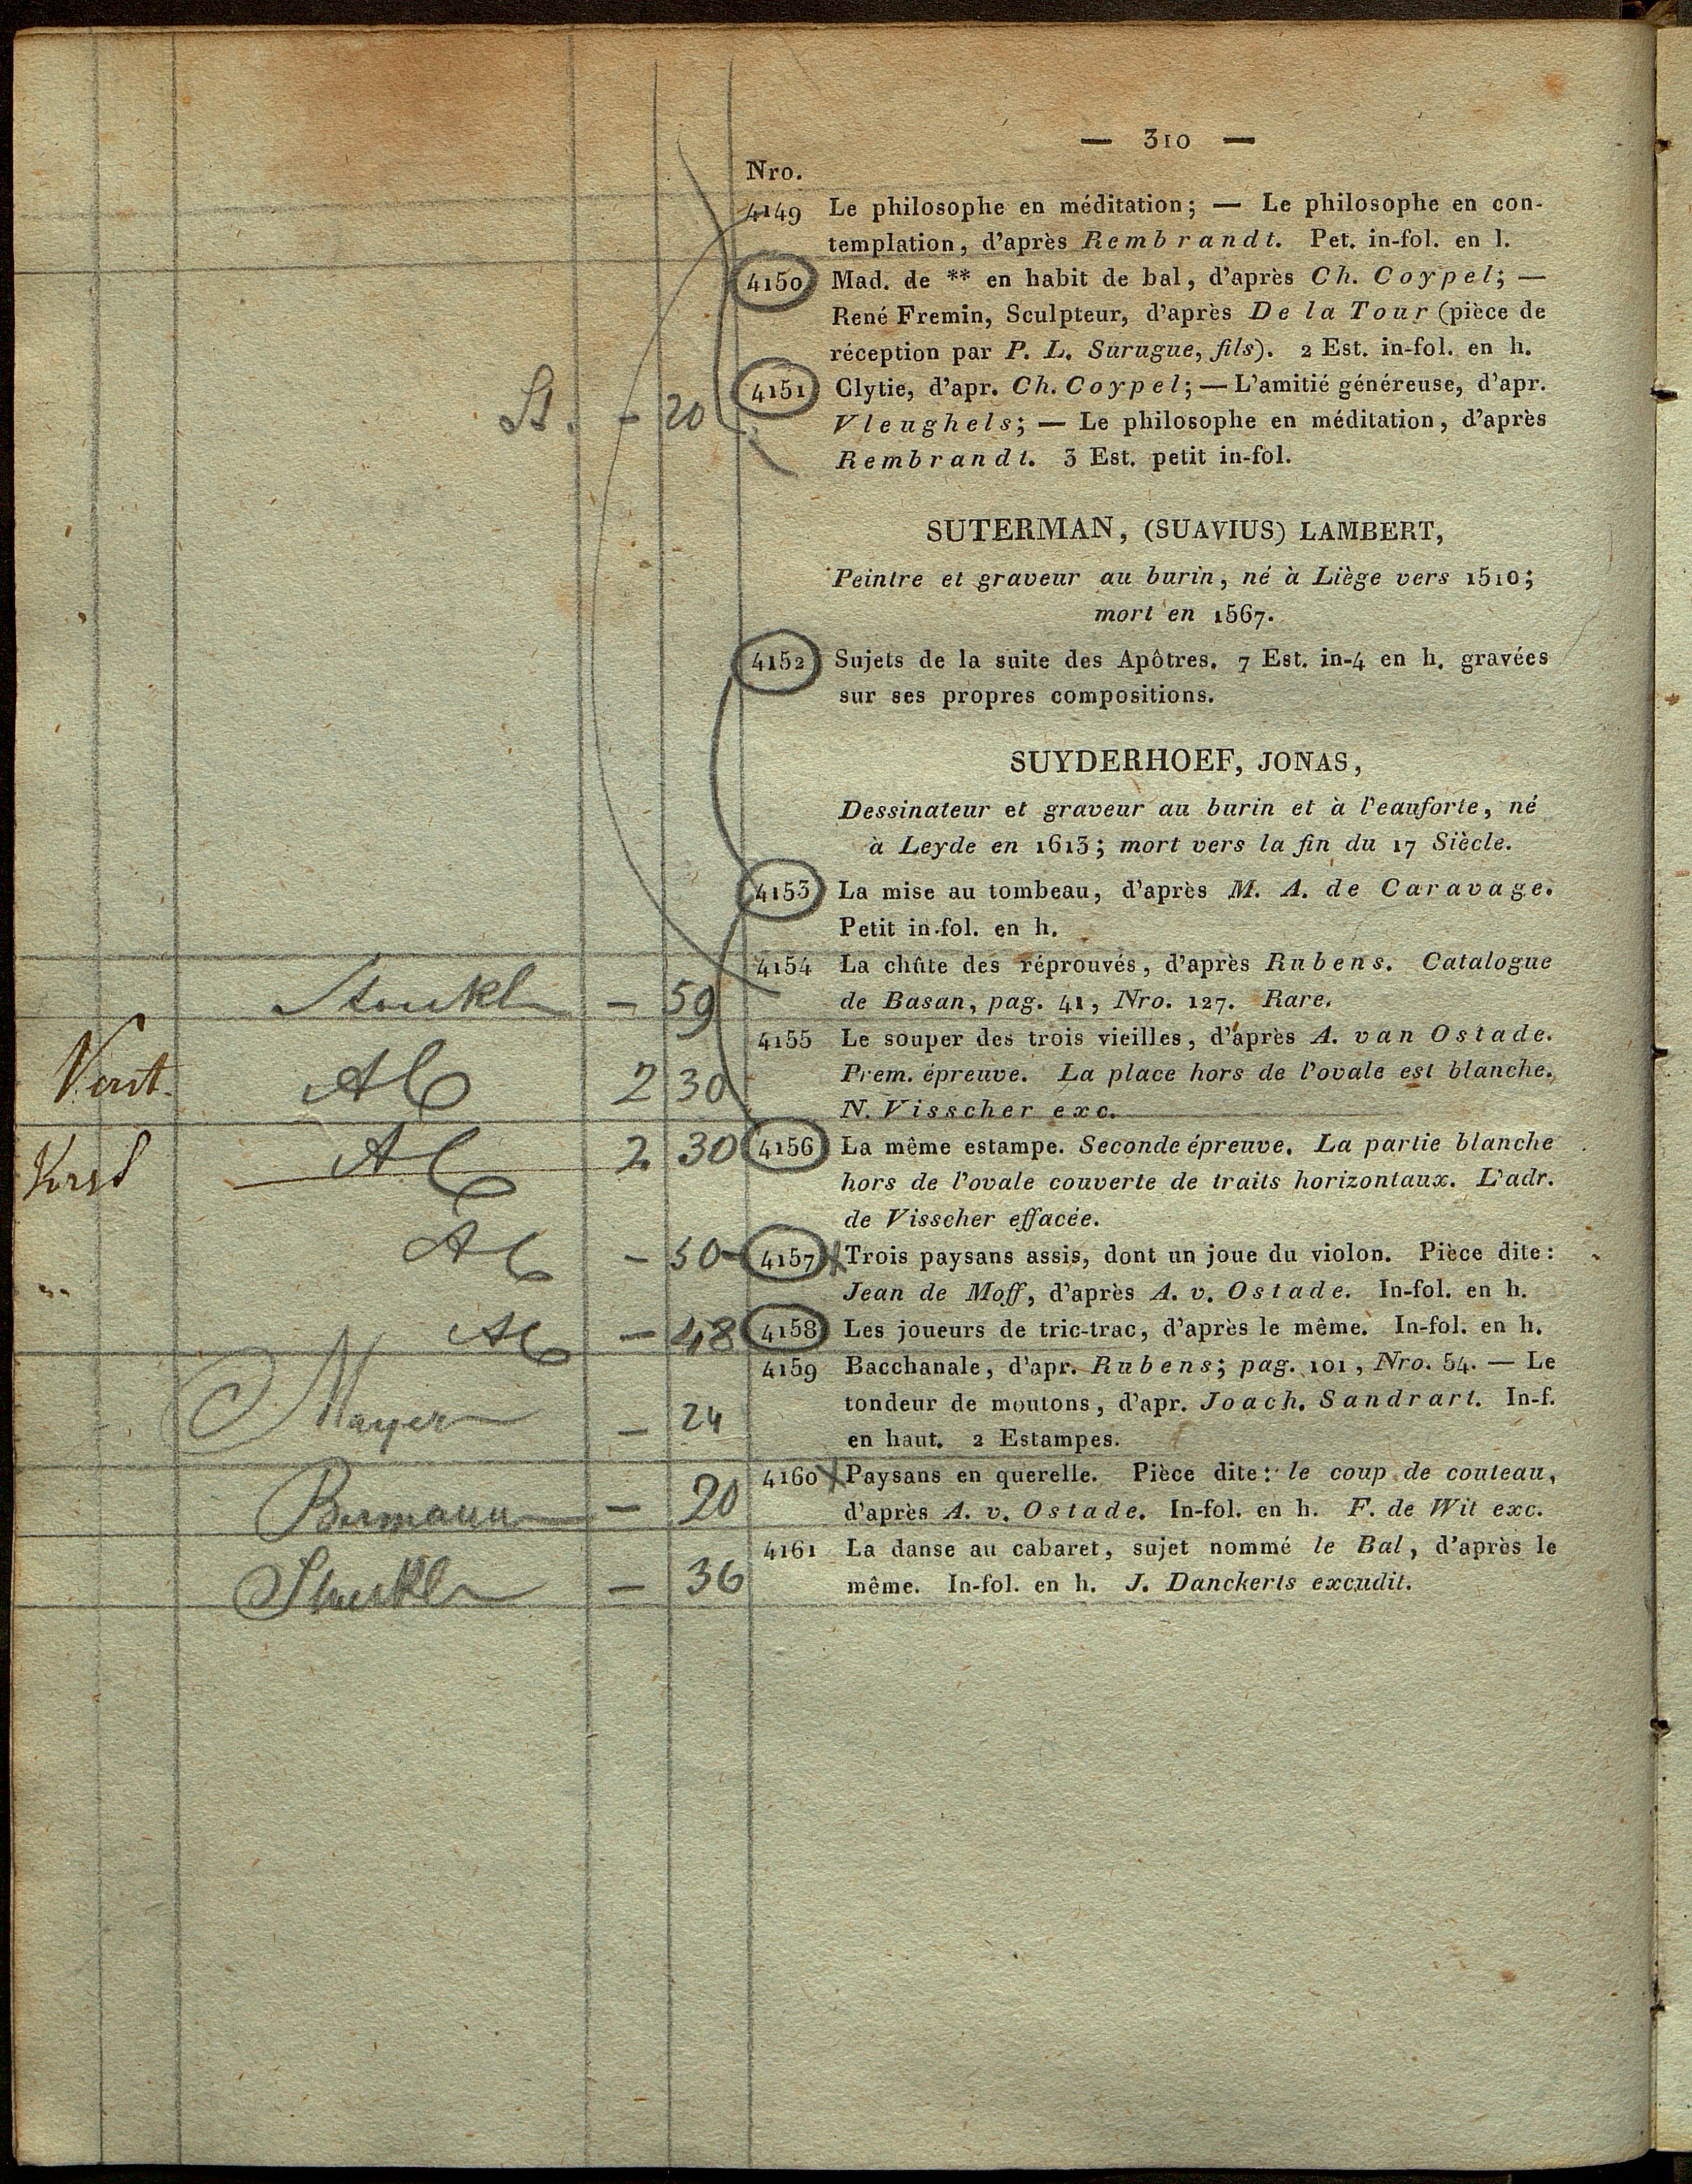 — 310 —
Nro.
4149 Le philosophe en méditation; — Le philosophe en con-
templation, d'après Rembrandt. Pet. in-fol. en l.
4150 Mad. de ** en habit de bal, d'après Ch. Coypel; —
René Fremin, Sculpteur, d'après De la Tour (pièce de
réception par P. L. Surugue, fils). 2 Est. in-fol. en h.
4151 Clytie, d'apr. Ch. Coypel; — L'amitié généreuse, d'apr.
St. - 20 Vleughels; — Le philosophe en méditation, d'après
Rembrandt. 3 Est. petit in-fol.
SUTERMAN, (SUAVIUS) LAMBERT,
Peintre et graveur au burin, né à Liège vers 1510;
mort en 1567.
4152 Sujets de la suite des Apôtres. 7 Est. in-4 en h. gravées
sur ses propres compositions.
SUYDERHOEF, JONAS,
Dessinateur et graveur au burin et à l'eauforte, né
à Leyde en 1613; mort vers la fin du 17 Siècle.
4153 La mise au tombeau, d'après M. A. de Caravage.
Petit in-fol. en h.
4154 La chûte des réprouvés, d'après Rubens. Catalogue
- 59 de Basan, pag. 41, Nro. 127. Rare.
4155 Le souper des trois vieilles, d'après A. van Ostade.
2 30 Prem. épreuve. La place hors de l'ovale est blanche.
N. Visscher exc.
2 30 4156 La même estampe. Seconde épreuve. La partie blanche
hors de l'ovale couverte de traits horizontaux. L'adr.
de Visscher effacée.
- 50 - 4157 Trois paysans assis, dont un joue du violon. Pièce dite:
Jean de Moff, d'après A. v. Ostade. In-fol. en h.
- 48 4158 Les joueurs de tric-trac, d'après le même. In-fol. en h.
4159 Bacchanale, d'apr. Rubens; pag. 101, Nro. 54. — Le
Mayer - 24 tondeur de moutons, d'apr. Joach. Sandrart. In-f.
en haut. 2 Estampes.
4160 Paysans en querelle. Pièce dite: le coup de couteau,
Bermann - 20 d'après A. v. Ostade. In-fol. en h. F. de Wit exc.
4161 La danse au cabaret, sujet nommé le Bal, d'après le
- 36 même. In-fol. en h. J. Danckerts excudit.